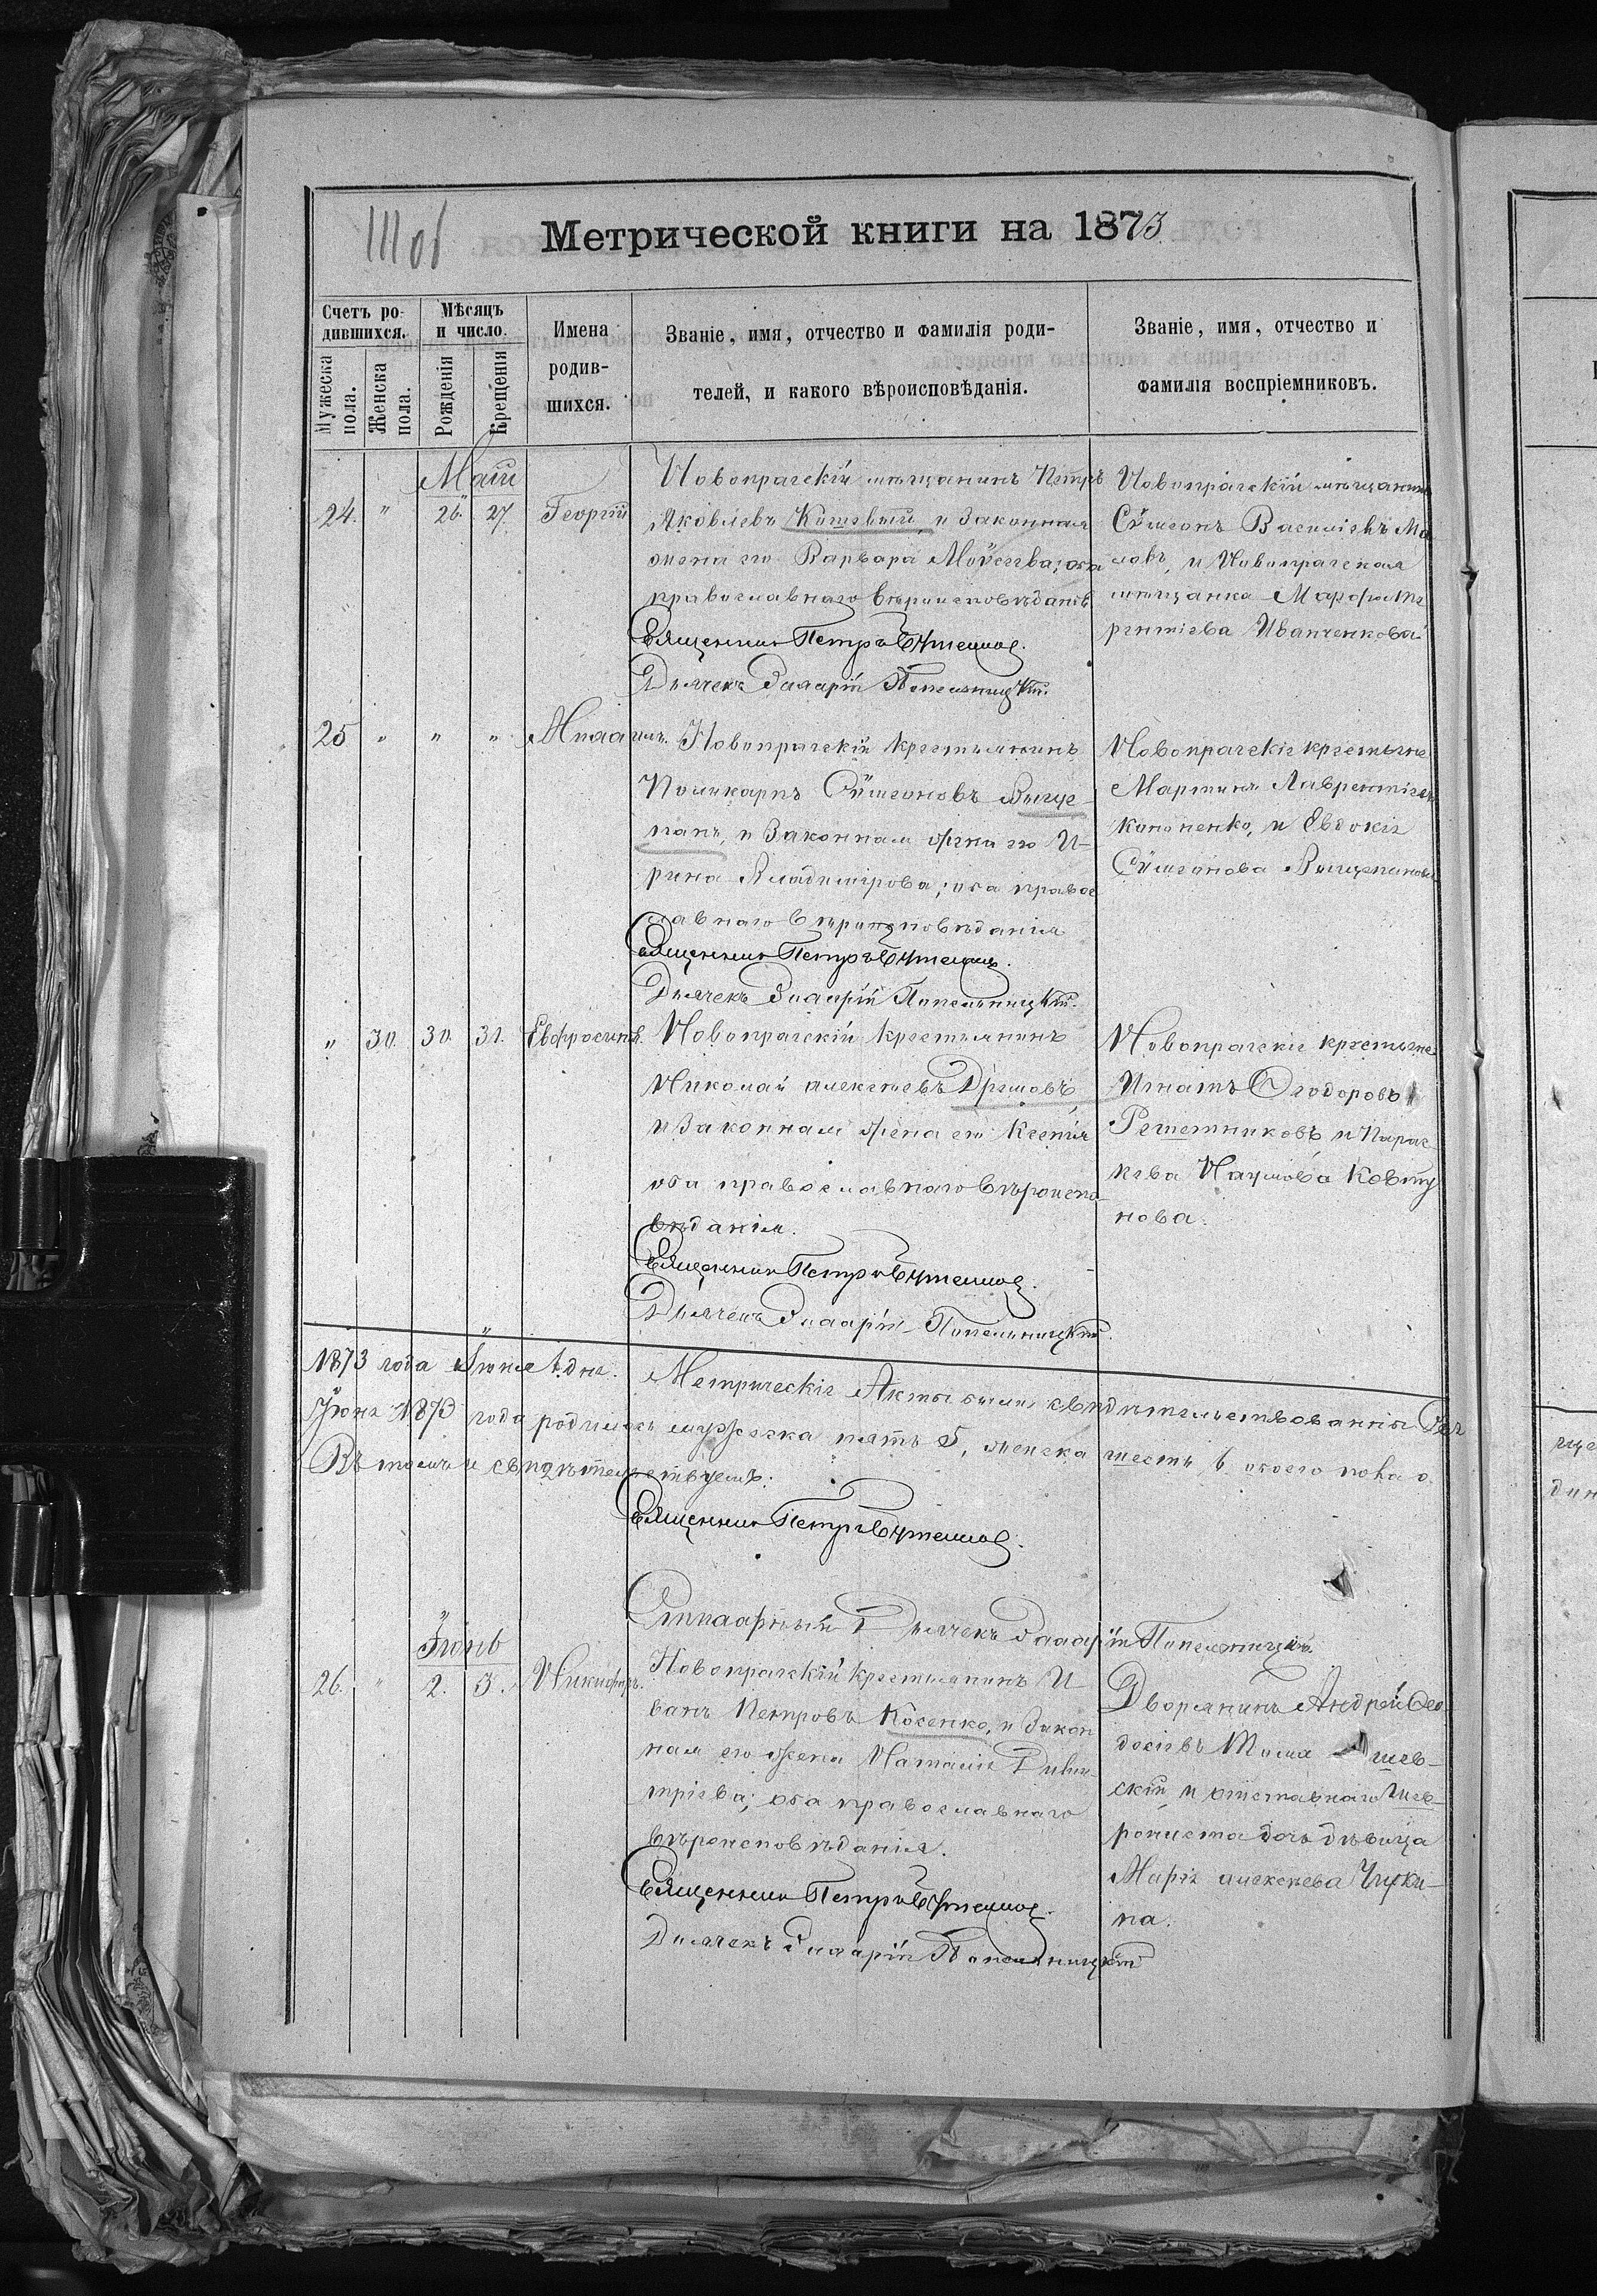 111 об
Метрической книги на 1873
Счетъ ро-
дившихся.
Мужеска
пола.
Женска
пола.
Мѣсяцъ
и число.
Рожденія
Крещенія
Имена
родив-
шихся.
Званіе, имя, отчество и фамилія роди-
телей, и какого вѣроисповѣданія.
Званіе, имя, отчество и
фамилія воспріемниковъ.
Май
24. " 26. 27. Георгій
Новопрагскій мѣщанинъ Петръ
Яковлевъ и законная
жена его Варвара Моѵсеева; оба
православнаго вѣроисповѣданія
Священникъ Петръ
Дьячекъ
Новопрагскій мѣщанинъ
Сѵмеонъ Василіевъ Ма-
ловъ, и Новопрагская
мѣщанка Марфа Ле-
рентіева Иванченкова
25 " " " Михаилъ.
Новопрагскій крестьянинъ
Поликарпъ Сѵмеоновъ Выще-
панъ, и законная жена его И-
рина Владимірова; оба правос-
лавнаго вѣроисповѣданія
Священникъ Петръ
Дьячекъ
Новопрагскіе крестьяне
Мартинъ Лаврентіевъ
Кононенко, и Евдокія
Сѵмеонова Выщепанова
" 30. 30. 31. Евфросинія.
Новопрагскій крестьянинъ
Николай Алексѣевъ
и законная жена его Ксенія
оба православнаго вѣроиспо-
вѣданія.
Священникъ Петръ
Дьячекъ
Новопрагскіе крестьяне
Игнатъ Ѳеодоровъ
Решетниковъ и Парас-
кева Наумова Ковту-
нова.
1873 года Іюня 1 дня. Метрическіе Акты были свидѣтельствованы
1873 года родилось мужеска пять 5, женска шесть 6. обоего пола о.
Въ томъ и свидѣтельствуемъ.
Священникъ Петръ
Дьячекъ
Іюнь
26. " 2. 3. Никифоръ.
Новопрагскій крестьянинъ И-
ванъ Петровъ Косенко, и закон-
ная его жена Наталія Дими-
тріева; оба православнаго
вѣроисповѣданія.
Священникъ Петръ
Дьячекъ
Дворянинъ Андрей Ѳео-
досіевъ
скій и отставнаго
дочь дѣвица
Марія Алексѣева Чирки-
на.